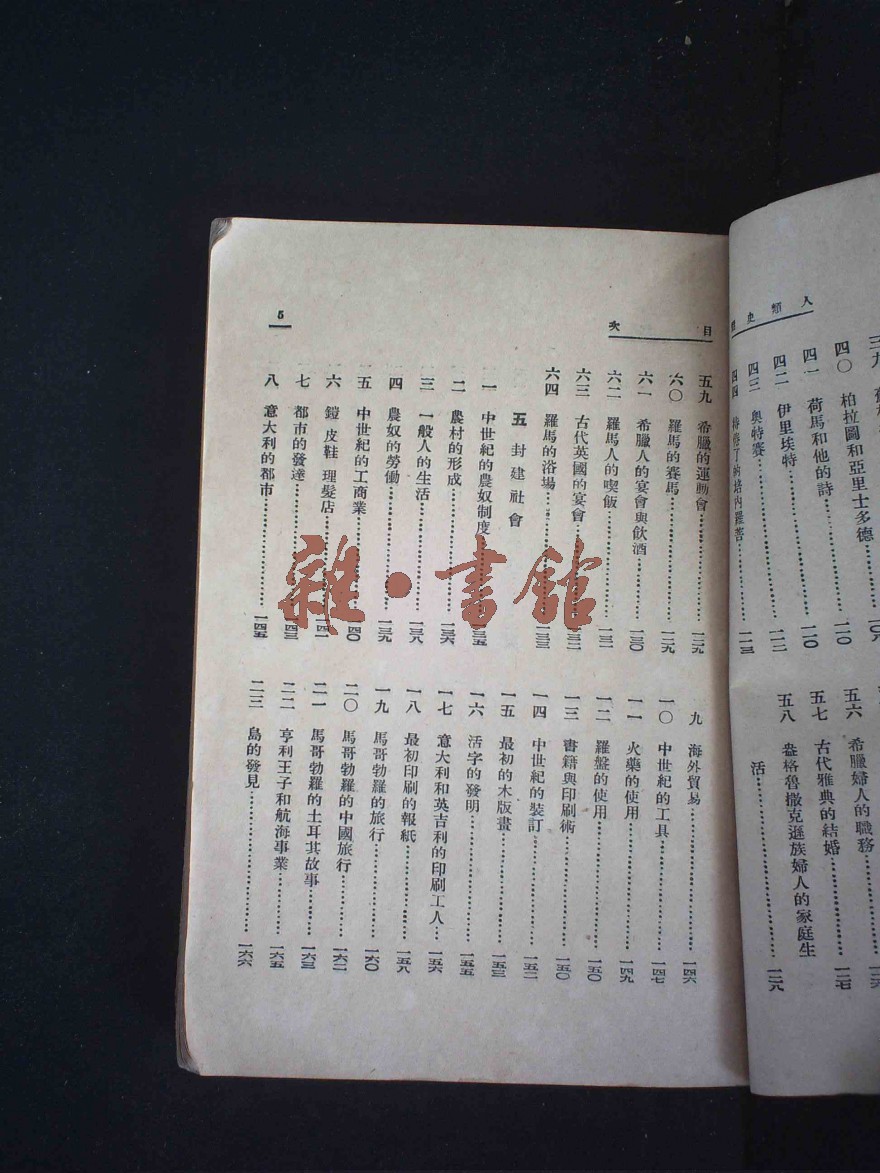 人類史
四〇 柏拉圖和亞里士多德……一〇六
四一 荷馬和他的詩……一一〇
四二 伊里埃特……一一〇
四三 奧特賽……一一二
四四……一一三
五六 希臘婦人的職務……一二六
五七 古代雅典的結婚……一二七
五八 盎格魯撒克遜族婦人的家庭生
活……一二八
目次
5
五九 希臘的運動會……一二九
六〇 羅馬的賽馬……一二九
六一 希臘人的宴會與飲酒……一三〇
六二 羅馬人的喫飯……一三一
六三 古代英國的宴會……一三二
六四 羅馬的浴場……一三三
五 封建社會
一 中世紀的農奴制度……一三五
二 農村的形成……一三六
三 一般人的生活……一三八
四 農奴的勞働……一三九
五 中世紀的工商業……一四〇
六 鎧 皮鞋 理髮店……一四一
七 都市的發達……一四三
八 意大利的都市……一四五
九 海外貿易……一四六
一〇 中世紀的工具……一四七
一一 火藥的使用……一四九
一二 羅盤的使用……一五〇
一三 書籍與印刷術……一五〇
一四 中世紀的裝訂……一五二
一五 最初的木版畫……一五三
一六 活字的發明……一五五
一七 意大利和英吉利的印刷工人……一五六
一八 最初印刷的報紙……一五八
一九 馬哥勃羅的旅行……一六〇
二〇 馬哥勃羅的中國旅行……一六二
二一 馬哥勃羅的土耳其故事……一六三
二二 亨利王子和航海事業……一六五
二三 島的發見……一六六
雜·書館